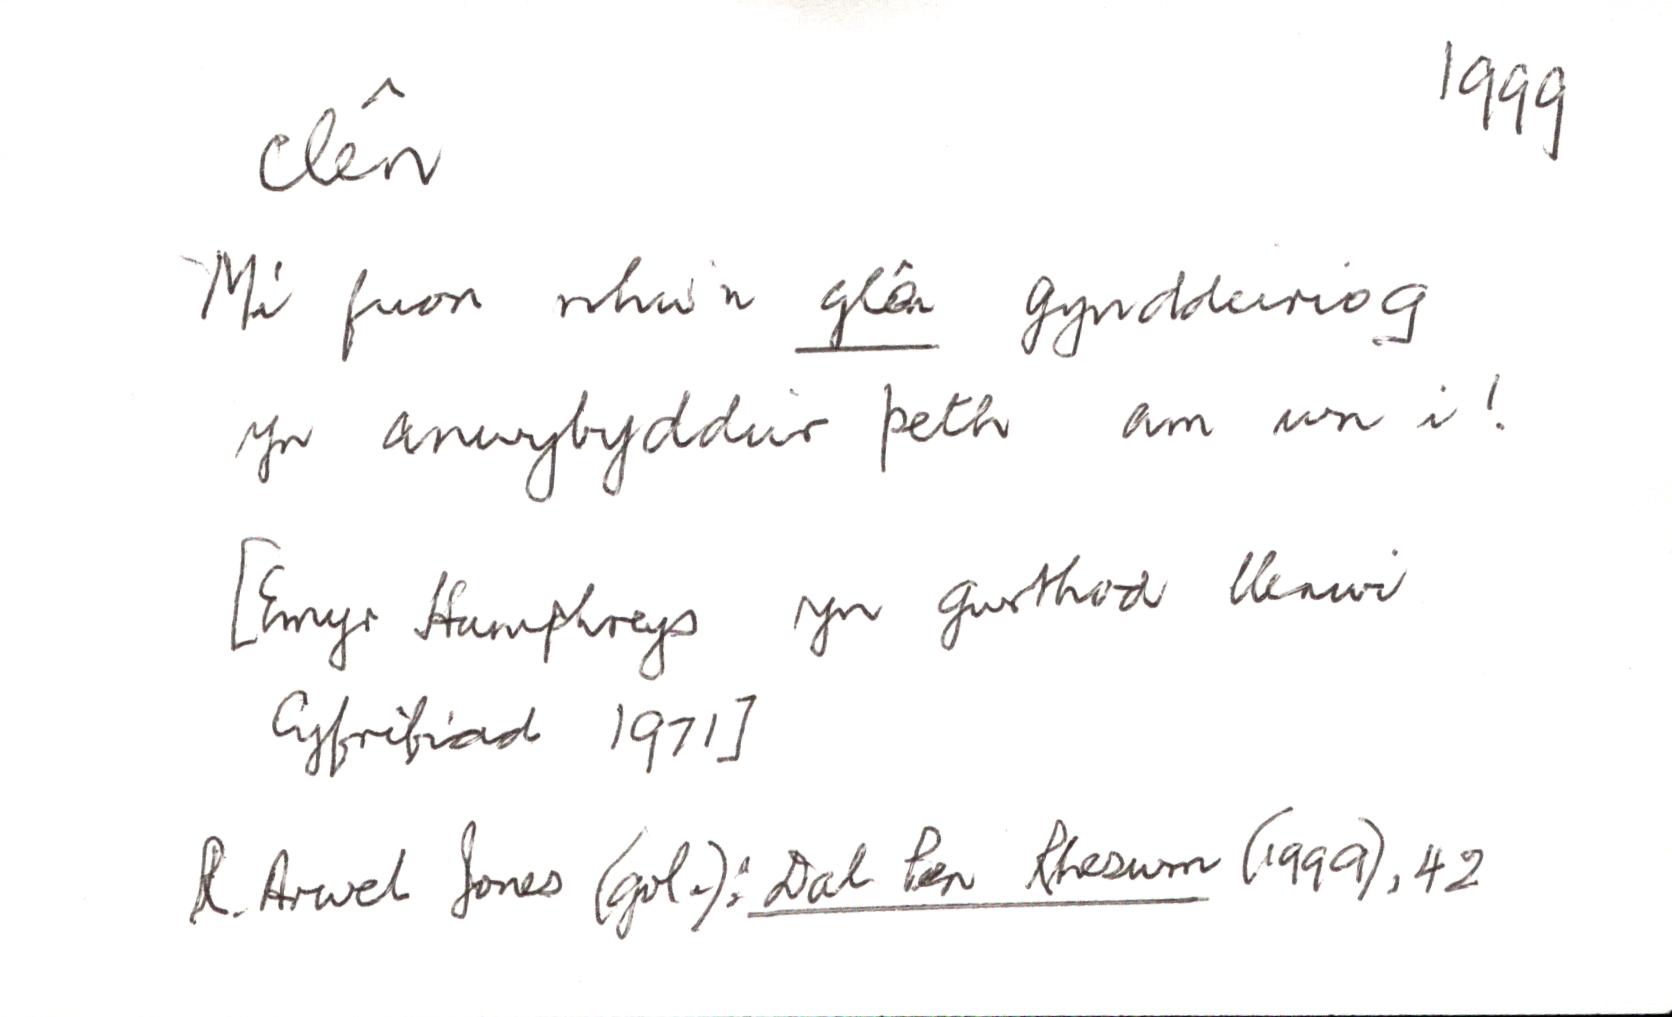 1999
clên
Mi fuon nhw'n glên gynddeiriog
yn anwybyddu'r peth am wn i!
[Emyr Humphreys yn gwrthod llenwi
Cyfrifiad 1971]
R. Arwel Jones (gol.): Dal Pen Rheswm (1999), 42